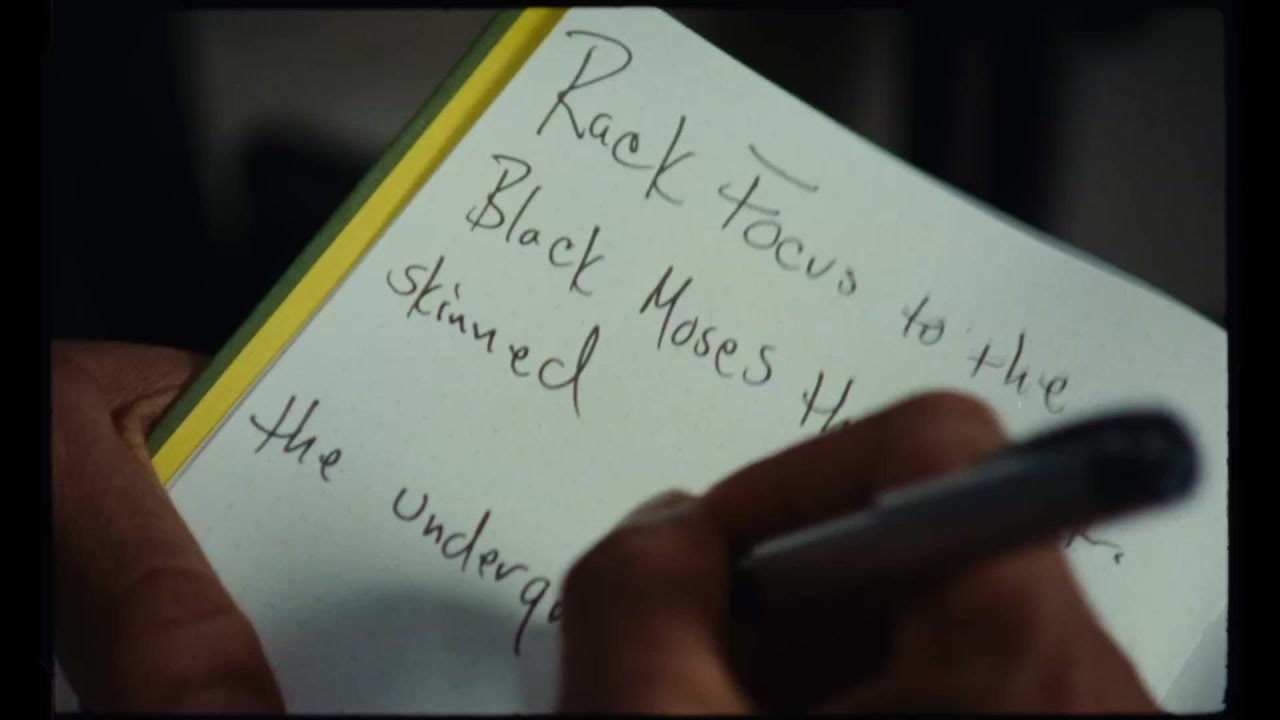 Rack Focus to the
Black Moses
skinned
the